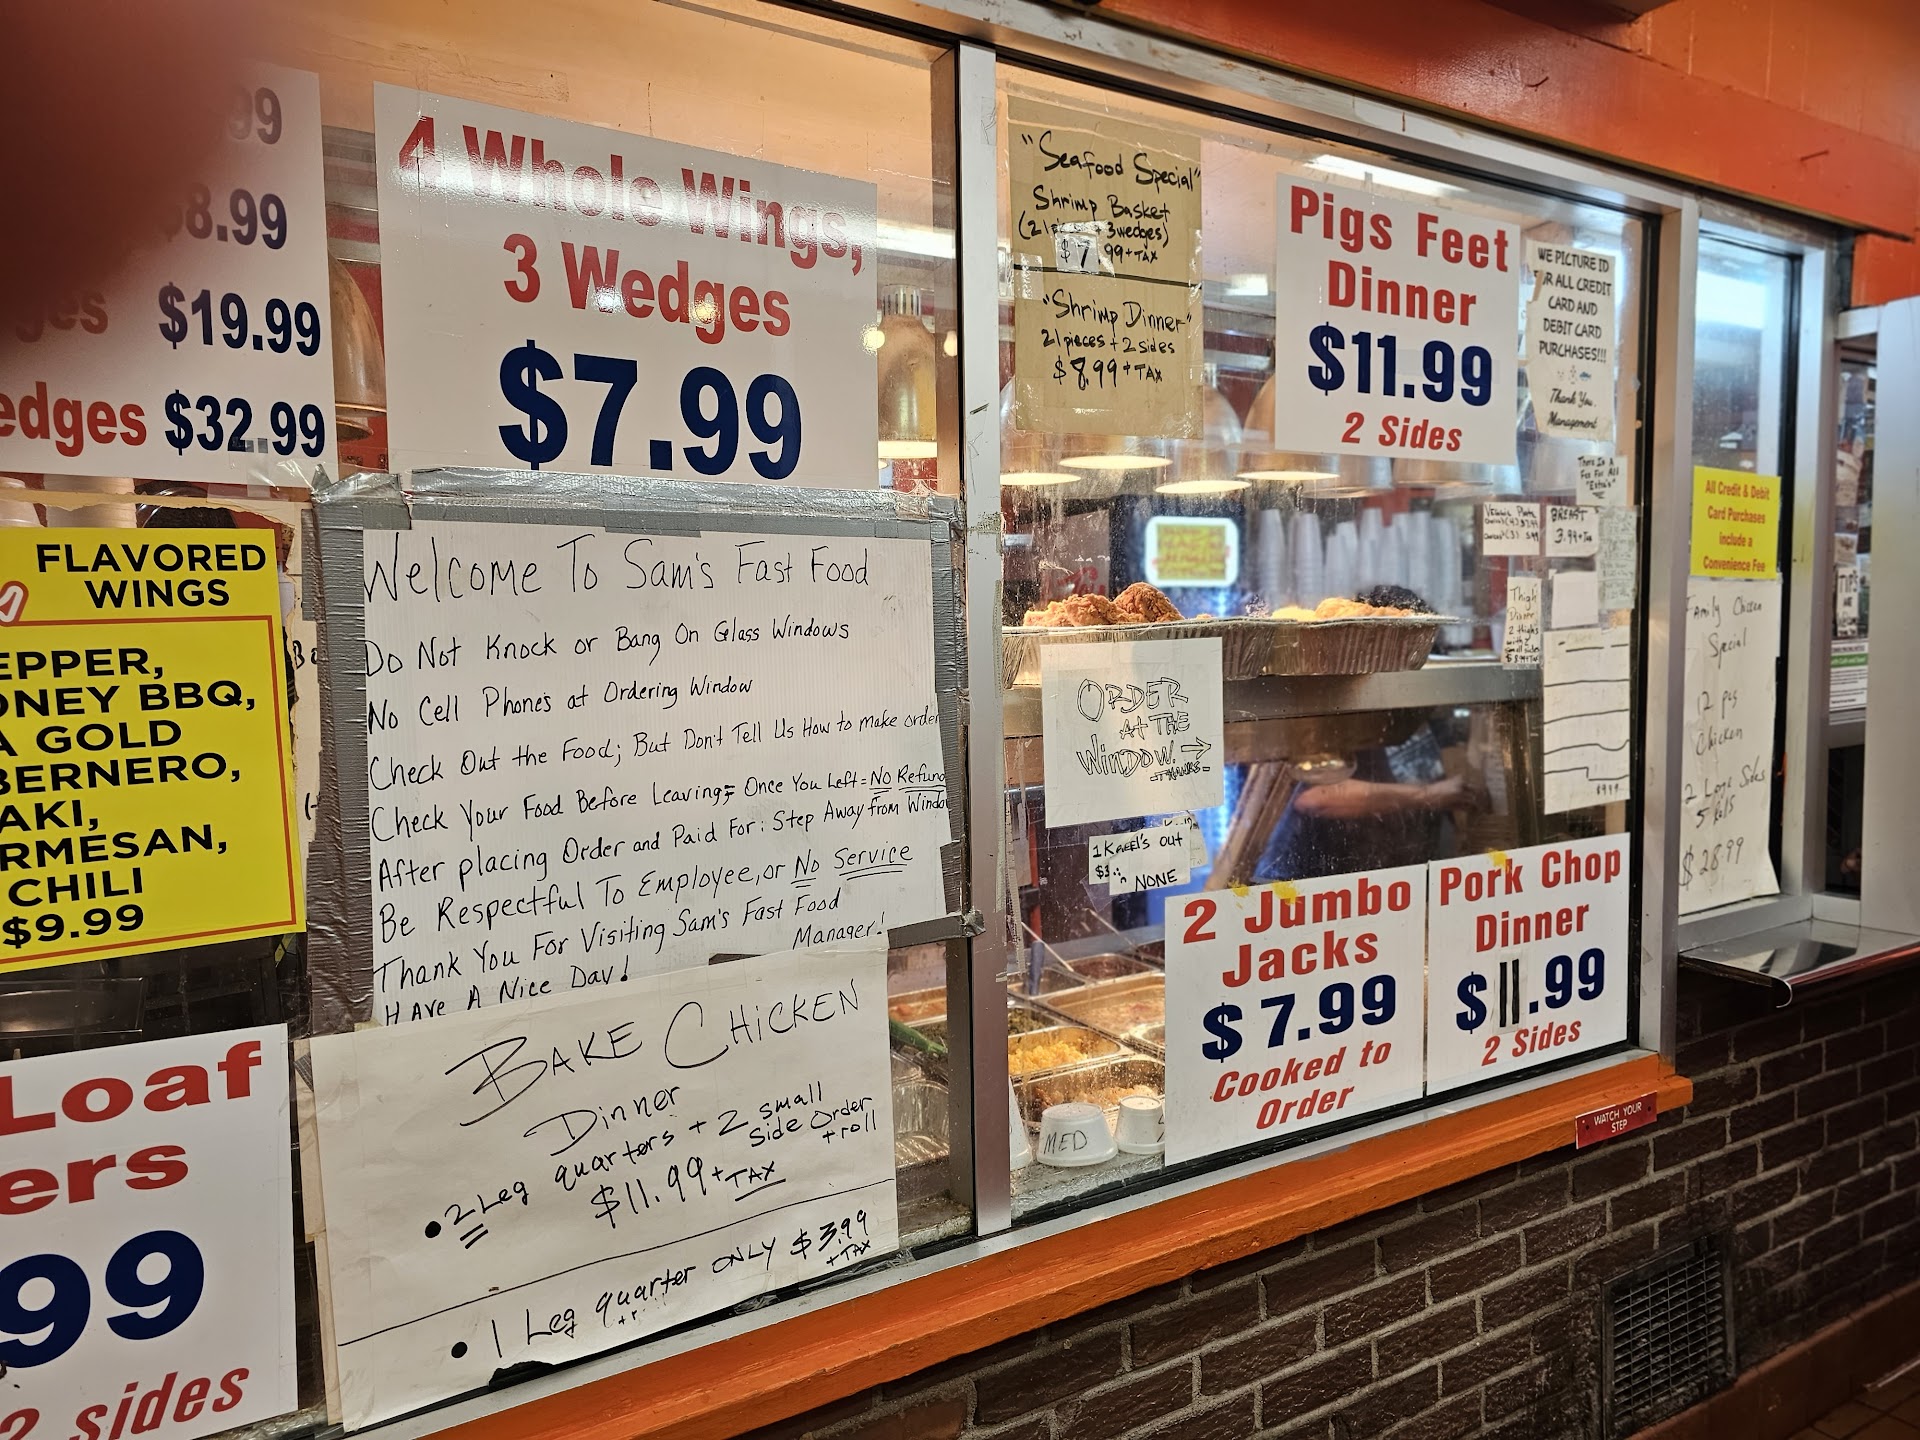 99
$8.99
$19.99
edges $32.99
4 Whole Wings,
3 Wedges
$7.99
FLAVORED
WINGS
EPPER,
ONEY BBQ,
A GOLD
BERNERO,
AKI,
RMESAN,
CHILI
$9.99
Loaf
ers
99
2 sides
Welcome To Sam's Fast Food
Do Not Knock or Bang On Glass Windows
No Cell Phone's at Ordering Window
Check Out the Food; But Don't Tell Us How to make order
Check Your Food Before Leaving; Once You Left = No Refund
After placing Order and Paid For: Step Away from Windo
Be Respectful To Employee, or No Service
Thank You For Visiting Sam's Fast Food
Manager!
Have A Nice Day!
Bake Chicken
Dinner
• 2 Leg quarters + 2 small
Side Order
+ roll
$11.99 + TAX
• 1 Leg quarter ONLY $3.99
+ TAX
"Seafood Special"
Shrimp Basket
+ 3 wedges)
$7.99 + TAX
"Shrimp Dinner"
21 pieces + 2 sides
$8.99 + TAX
Pigs Feet
Dinner
$11.99
2 Sides
WE PICTURE ID
FOR ALL CREDIT
CARD AND
DEBIT CARD
PURCHASES!!!
Thank You
Management
There Is A
Fee For All
"Extra's"
Veggie Plate
BREAST
3.99 + Tax
Thigh
Dinner
2 thighs
with 2
small sides
ORDER
AT THE
WINDOW.
-THANKS-
out
NONE
MED
2 Jumbo
Jacks
$7.99
Cooked to
Order
Pork Chop
Dinner
$11.99
2 Sides
WATCH YOUR
STEP
All Credit & Debit
Card Purchases
include a
Convenience Fee
Family Chicken
Special
12 pcs
Chicken
2 Large Sides
5 Rolls
$28.99